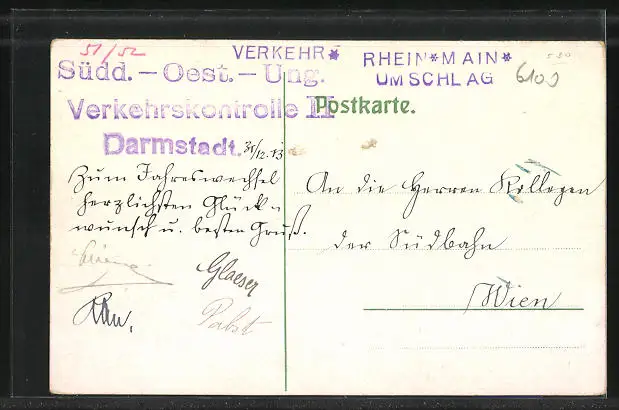 51/52
VERKEHR*
RHEIN*MAIN*
UMSCHLAG
6100
Südd. – Oest. – Ung.
Verkehrskontrolle II
Darmstadt. 31/12.13
Postkarte.
Zum Jahreswechsel
herzlichsten Glück-
wunsch u. besten Gruß.
Glaeser
Pabst
An die Herren Kollegen
der Südbahn
Wien